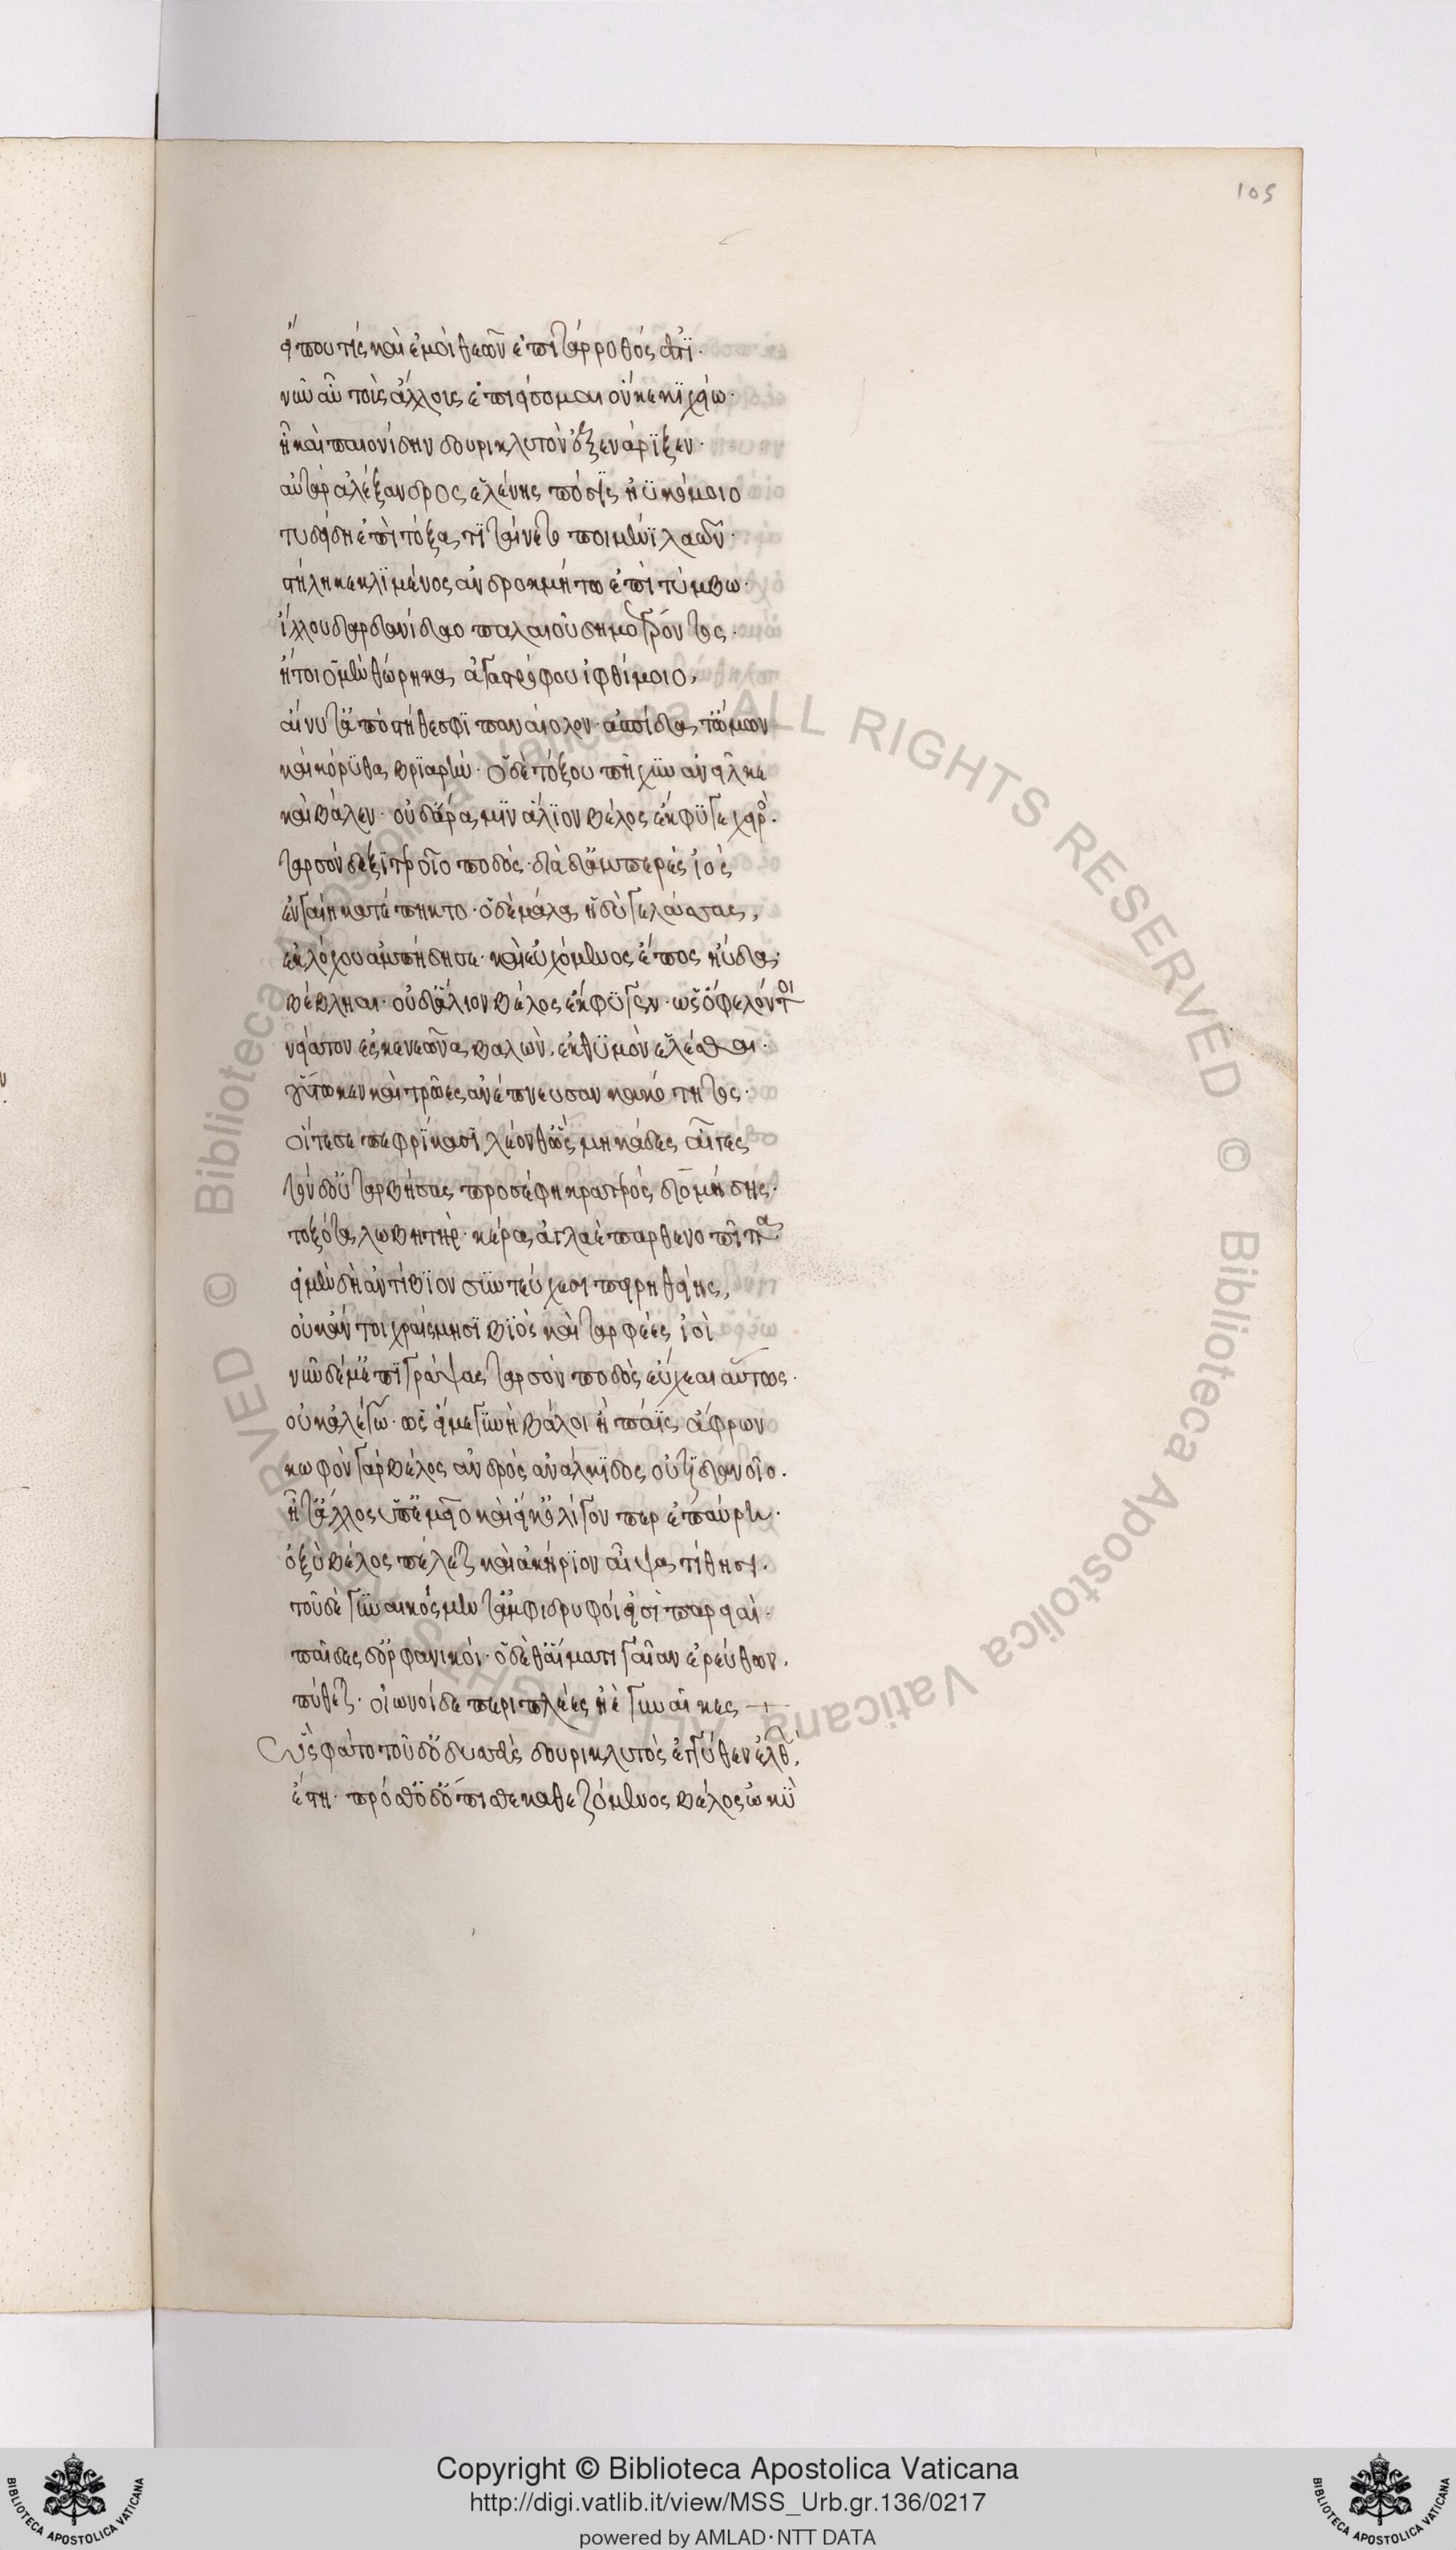 105
εἴ που τίς καὶ ἐμοὶ θεῶν ἐπιτάρροθός ἐστϊ·
νῦν αὖ τοὺς ἄλλους ἐπιείσομαι ὅν κε κϊχείω·
ἦ καὶ παιονίδην δουρικλυτὸν ἐξενάρϊξεν·
αὐτὰρ ἀλέξανδρος ἑλένης πόσϊς ἠϋκόμοιο
τυδείδη ἐπὶ τόξα τϊταίνετο ποιμένϊ λαῶν·
στήλη κεκλϊμένος ἀνδροκμήτω ἐπὶ τύμβω·
ἴλλου δαρδανίδαο παλαιοῦ δημογέροντος·
ἤτοι ὃ μὲν θώρηκα ἀγαστρόφου ἰφθίμοιο,
αἴνυτ' ἀπὸ στήθεσφϊ παναίολον· ἀσπίδα τ' ὤμων
καὶ κόρϋθα βρϊαρήν· ὃ δὲ τόξου πῆχϋν ἄνελκε
καὶ βάλεν· οὐδ' ἄρα μϊν ἅλϊον βέλος ἔκφϋγε χειρός·
ταρσὸν δεξϊτεροῖο ποδός· διὰ δ' ἀμπερὲς ἰὸς
ἐν γαίη κατέπηκτο· ὃ δὲ μάλα ἡδὺ γελάσσας,
ἐκ λόχου ἀμπήδησε· καὶ εὐχόμενος ἔπος ηὔδα·
βέβληαι· οὐδ' ἅλιον βέλος ἔκφϋγεν· ὡς ὄφελόν τοι
νείατον ἐς κενεῶνα βαλὼν, ἐκ θϋμὸν ἑλέσθαι·
οὕτω κεν καὶ τρῶες ἀνέπνευσαν κακότητος·
οἵ τέ σε πεφρίκασϊ λέονθ' ὡς μηκάδες αἶγες
τὸν δ' οὐ ταρβήσας προσέφη κρατερὸς διομήδης·
τοξότα λωβητὴρ· κέρα ἀγλαὲ παρθενοπῖπα·
εἰ μὲν δὴ ἀντίβϊον σϋν τεύχεσι πειρηθείης,
οὐκ ἄν τοι χραίσμησϊ βϊὸς καὶ ταρφέες ἰοὶ
νῦν δέ μ' ἐπϊγράψας ταρσὸν ποδὸς εὔχεαι αὔτως·
οὐκ ἀλέγω· ὡς εἴ με γϋνὴ βάλοι ἢ πάϊς ἄφρων
κωφὸν γὰρ βέλος ἀνδρὸς ἀνάλκϊδος οὐτϊδανοῖο.
ἦ τ' ἄλλως ὑπ' ἐμεῖο καὶ εἴ κ' ὀλίγον περ ἐπαύρη·
ὀξὺ βέλος πέλεται καὶ ἀκήρϊον αἶψα τίθησι·
τοῦ δὲ γϋναικὸς μὲν τ' ἀμφίδρυφοί εἰσι παρειαί·
παῖδες δ' ὀρφανικοί· ὃ δέ θ' αἵματι γαῖαν ἐρεύθων,
πύθεται· οἰωνοὶ δὲ περὶ πλέες ἠὲ γυναῖκες
ὣς φάτο τοῦ δ' ὀδυσεὺς δουρικλυτὸς ἐγγύθεν ἐλθὼν
ἔστη· πρόσθ' ὃ δ' ὄπισθε καθεζόμενος βέλος ὠκϋ
Copyright © Biblioteca Apostolica Vaticana
http://digi.vatlib.it/view/MSS_Urb.gr.136/0217
powered by AMLAD·NTT DATA